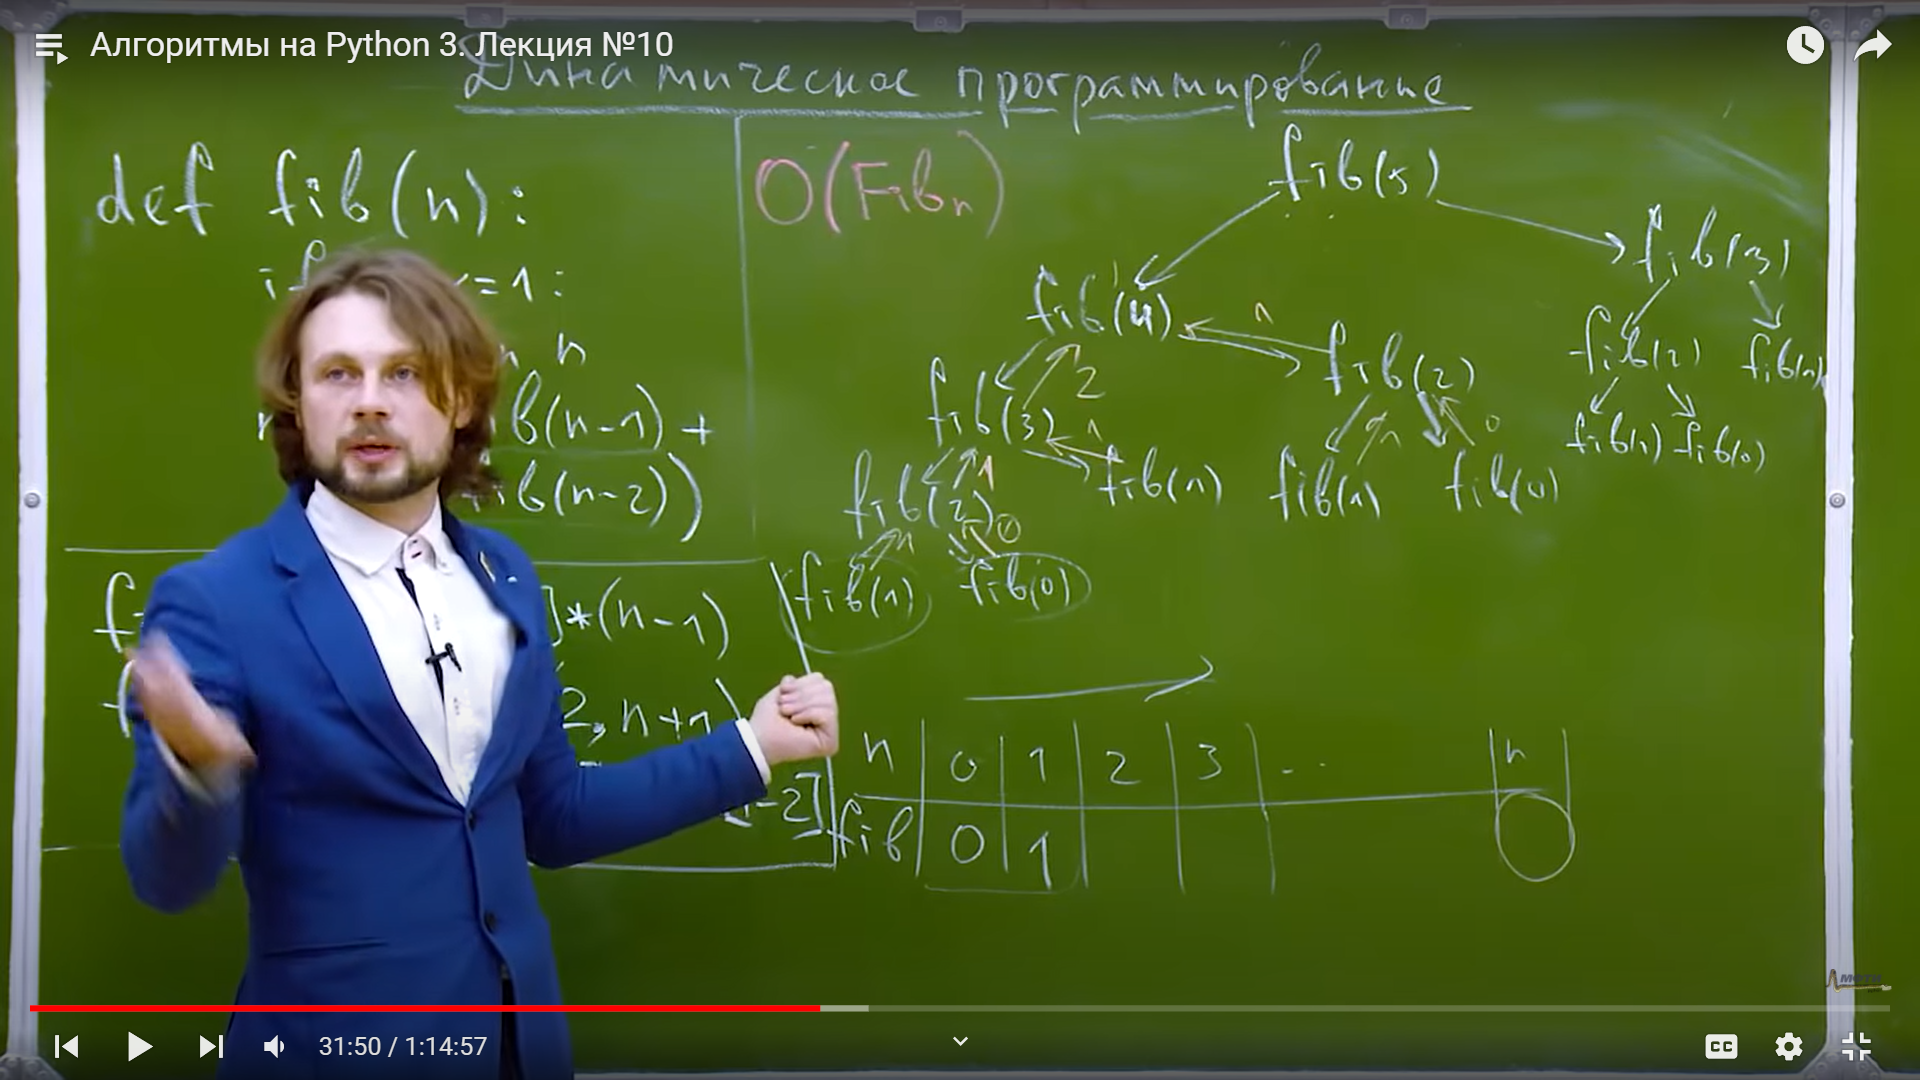 Алгоритмы на Python 3. Лекция №10
Динамическое программирование
def fib(n):
if =1:
n
ib(n-1)+
ib(n-2))
]*(n-1)
2, n+1)
-2]
O(Fibn)
fib(5)
fib(4) fib(3)
1
fib(3) 2 fib(2) fib(2) fib(1)
1 1 0
fib(2) 1 fib(1) fib(1) fib(0) fib(1) fib(0)
1 0
fib(1) fib(0)
n 0 1 2 3 ... n
fib 0 1
31:50 / 1:14:57
CC